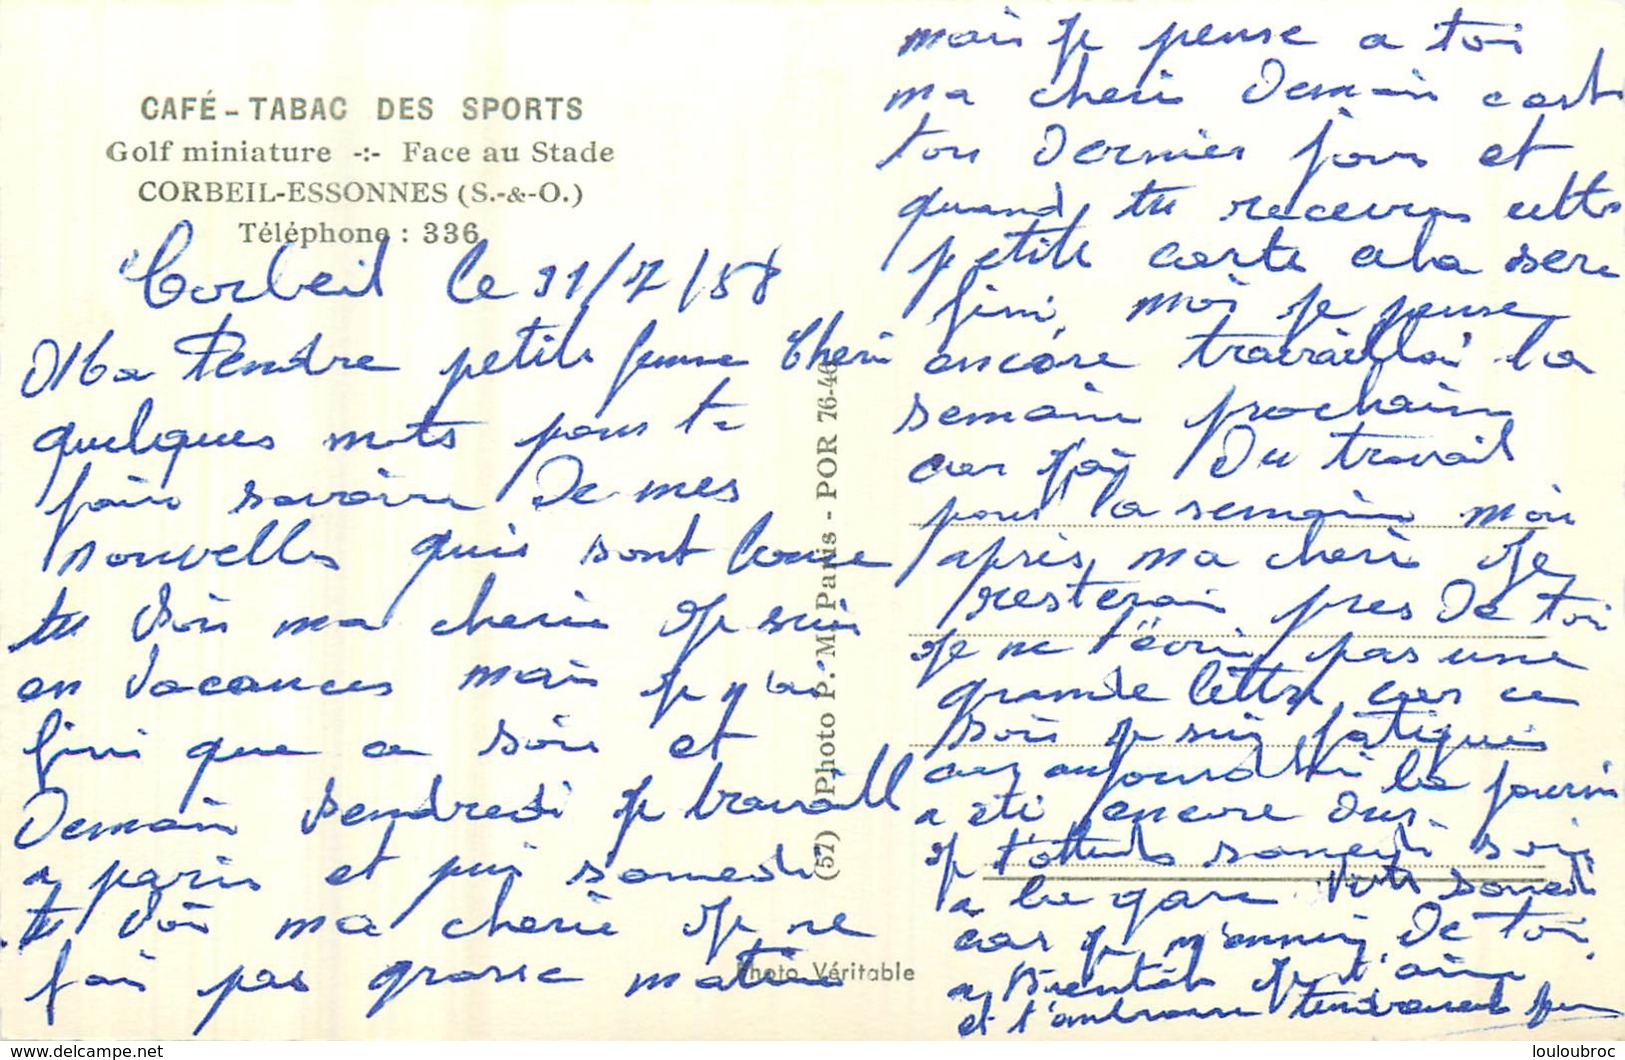 CAFÉ - TABAC DES SPORTS
Golf miniature -:- Face au Stade
CORBEIL-ESSONNES (S.-&-O.)
Téléphone : 336
Corbeil le 31/7/58
Ma Tendre petite femme Cheri
quelques mots pour te
fair savoir De mes
nouvelles quis sont bonne
tu Voi ma cherie je suis
en Vacances mais je n'ai
fini que ce soir et
Demain Vendredi je travaill
a paris et puis samedi
tu Voi ma cherie je ne
fai pas grasse matiné
mais je pense a toi
ma cheri Demain cest
ton Dernier jour et
quand tu recevras cette
petite carte cela sera
fini, moi je pense
encore travaillai la
semaine prochaine
car j'ai Du travail
pour la semaine moi
après, ma cheri je
resterai pres De toi
je ne t'écri pas une
grande lettre car ce
soir je suis fatigués
car aujourd'hui la journé
a été encore dur
je t'attends samedi soir
a la gare Vite samedi
car je m'ennui De toi
a Bientôt je t'aime
et t'embrasse tendrement
(57) Photo P. M. Paris - POR 76-46
Photo Véritable
louloubroc